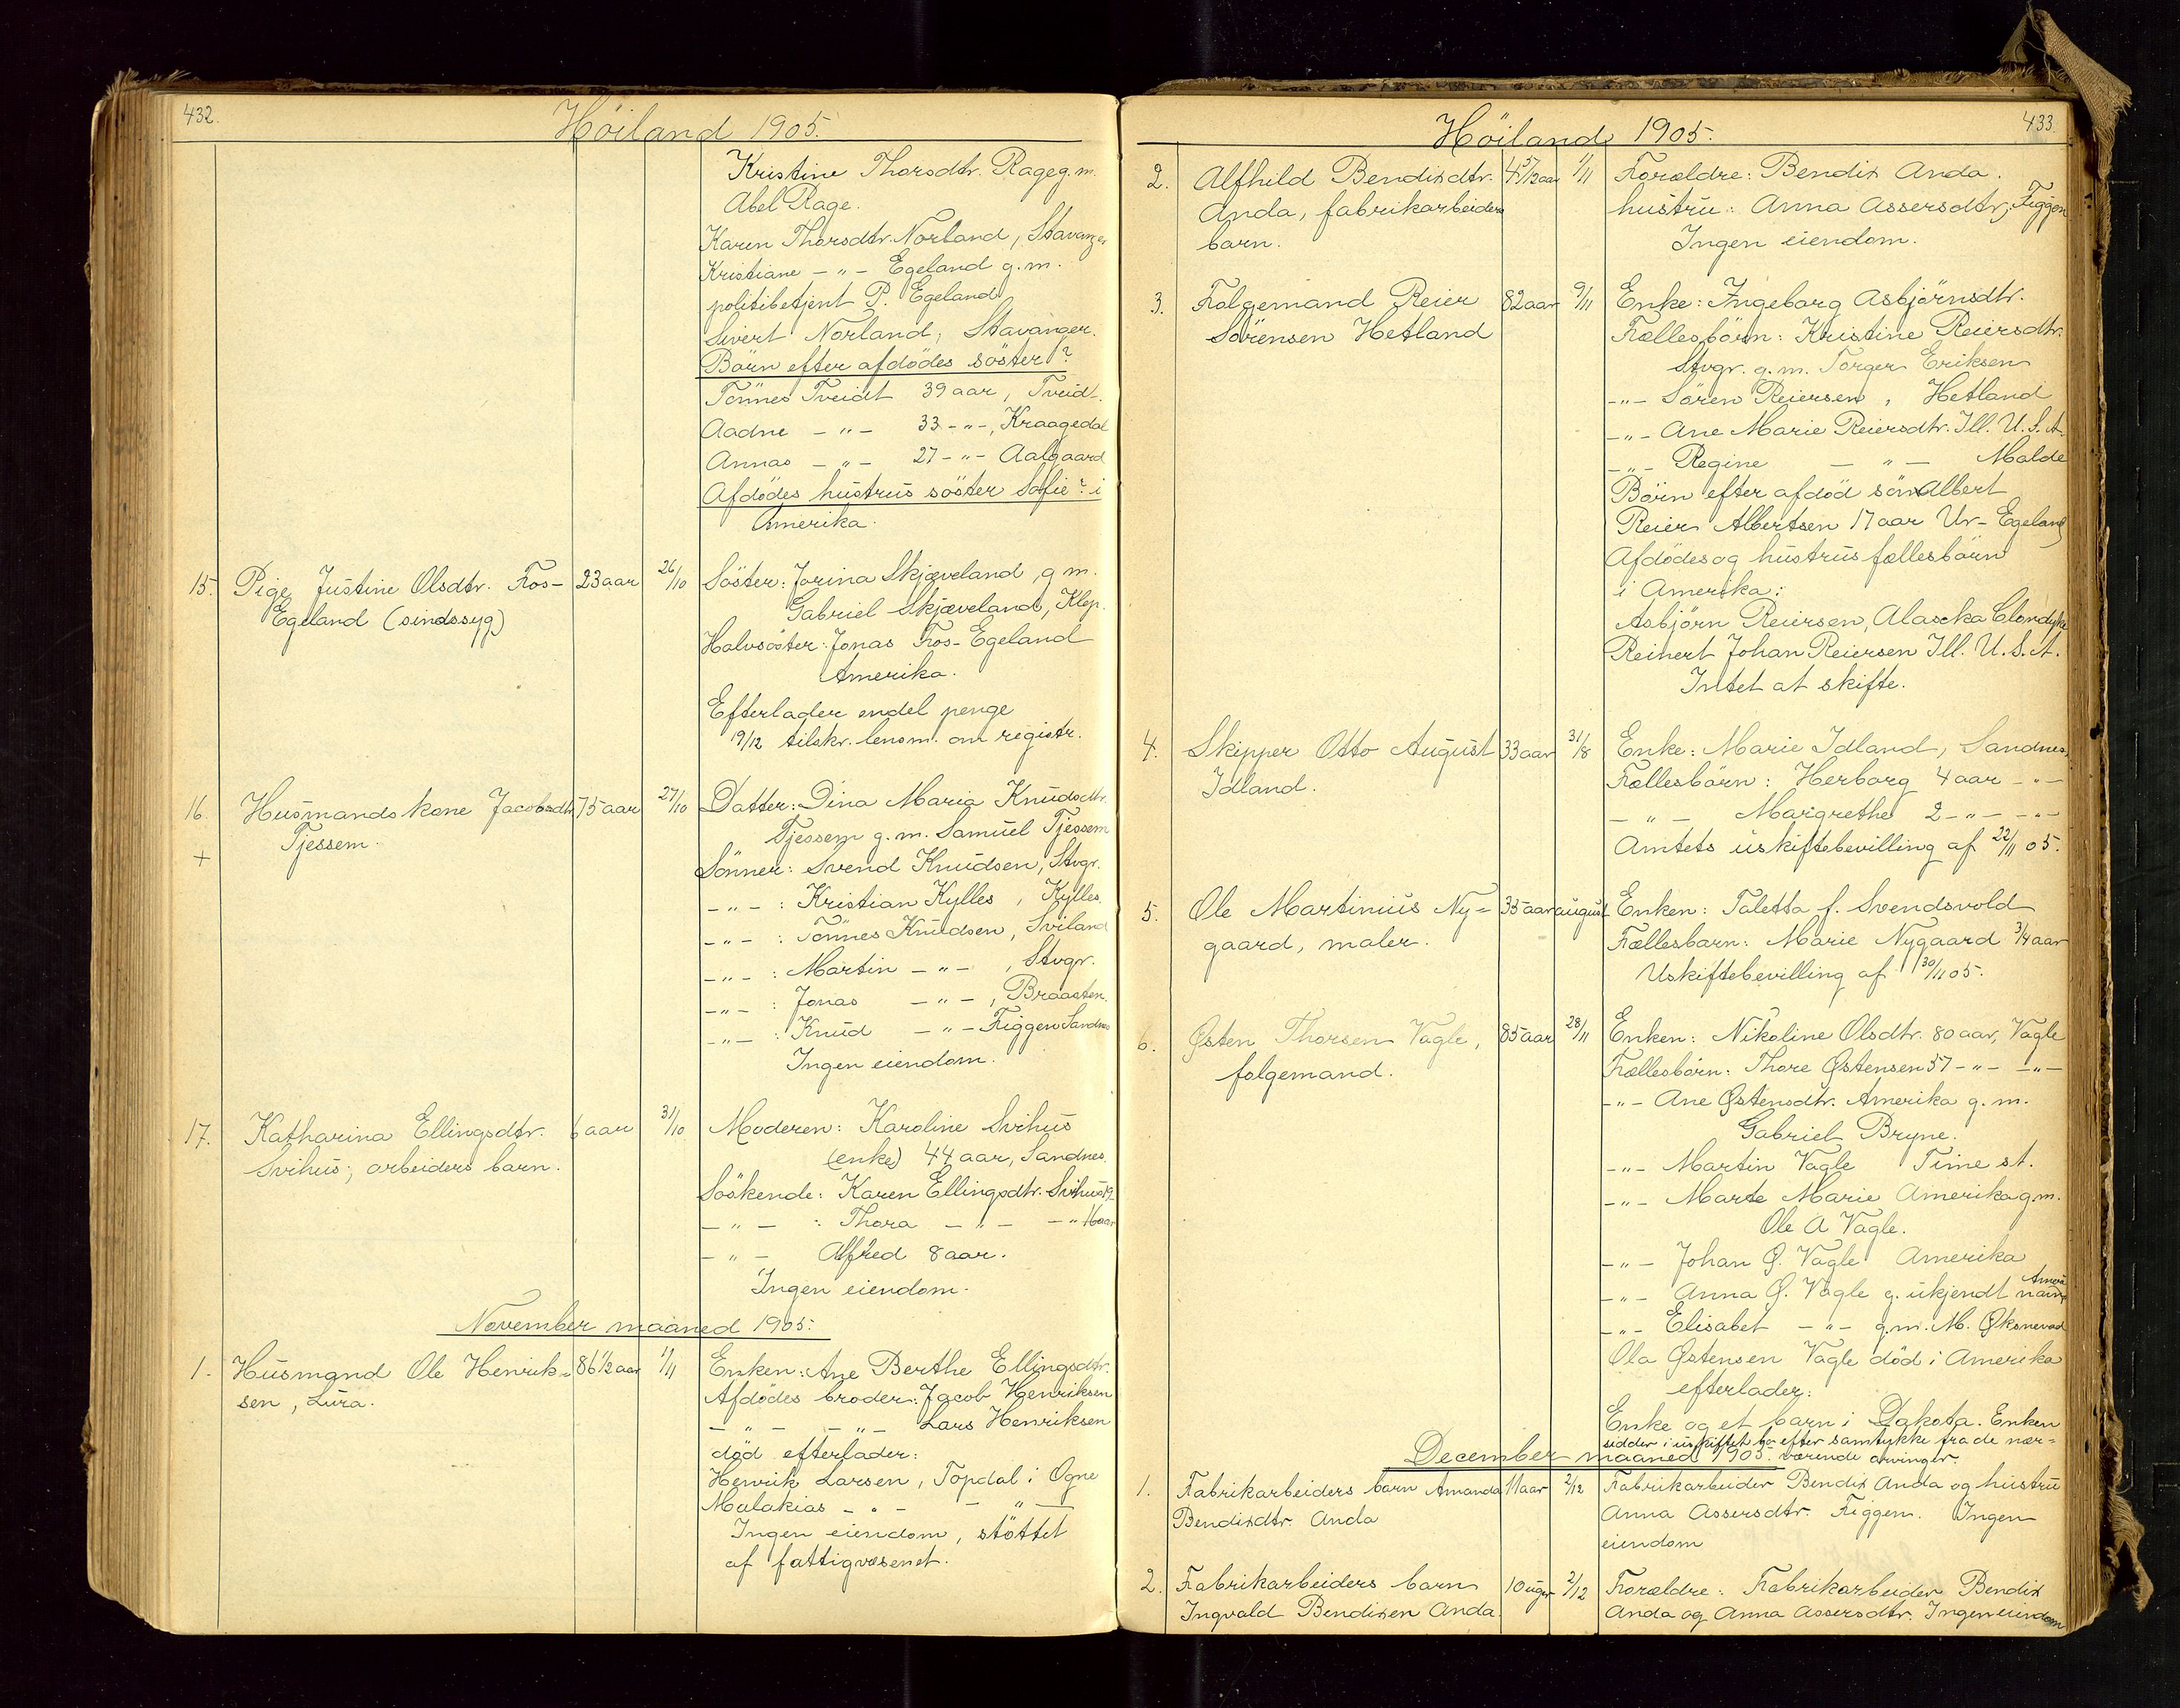 432.
Höiland 1905.
Kristine Thorsdtr. Rage g.m.
Abel Rage.
Karen Thorsdtr. Norland, Stavanger
Kristiane - " - Egeland g.m.
politibetjent P. Egeland
Sivert Norland, Stavanger.
Börn efter afdödes söster?
Tönnes Tveidt 39 aar, Tveidt.
Aadne - " - 33 - " -, Kraagedal
Annas - " - 27 - " - Aalgaard
Afdödes hustrus söster Sofie? i
Amerika.
15. Pige Justine Olsdtr. Fos- 23 aar 26/10 Söster: Jorina Skjæveland, g m.
Egeland (sindssyg) Gabriel Skjæveland, Klep.
Halvsöster: Jonas Fos-Egeland
Amerika.
Efterlader endel penge
19/12 tilskr. lensm. om registr.
16. Husmandskone Jacobsdtr 75 aar 27/10 Datter: Dina Maria Knudsdtr.
+ Tjessem. Tjessem g.m. Samuel Tjessem
Sönner: Svend Knudsen, Stvgr.
- " - : Kristian Kylles, Kylles.
- " - : Tönnes Knudsen, Sviland
- " - : Martin - " - , Stvgr.
- " - : Jonas - " - , Braasten.
- " - : Knud - " - Figgen Sandnes
Ingen eiendom.
17. Katharina Ellingsdtr. 6 aar 31/10 Moderen: Karoline Svihus
Svihus, arbeiders barn. (enke) 44 aar, Sandnes.
Söskende: Karen Ellingsdtr. Svihus 19
- " - : Thora - " - - " - 16 aar
- " - Alfred 8 aar.
Ingen eiendom.
November maaned 1905.
1. Husmand Ole Henrik= 86 1/2 aar 1/11 Enken: Ane Berthe Ellingsdtr.
sen, Lura. Afdödes broder: Jacob Henriksen
- " - - " - Lars Henriksen
död efterlader:
Henrik Larsen, Topdal i Ogne
Malakias - " - - " -
Ingen eiendom, stöttet
af fattigvæsenet.
433.
Höiland 1905.
2. Alfhild Bendixdtr. 4 5/12 aar 1/11 Forældre: Bendix Anda.
Anda, fabrikarbeiders hustru: Anna Assersdtr, Figgen
barn. Ingen eiendom.
3. Folgemand Reier 82 aar 9/11 Enke: Ingeborg Asbjörnsdtr.
Sörensen Hetland Fællesbörn: Kristine Reiersdtr.
Stvgr. g.m. Torger Eriksen
- " - Sören Reiersen, Hetland
- " - Ane Marie Reiersdtr. Ill. U.S.A.
- " - Regine - " - Malde
Börn efter afdöd sön Albert
Reier Albertsen 17 aar Ur-Egeland
Afdödes og hustrus fællesbörn
i Amerika:
Asbjörn Reiersen, Alascka Clondyke
Reinert Johan Reiersen Ill. U.S.A.
Intet at skifte.
4. Skipper Otto August 33 aar 31/8 Enke: Marie Idland, Sandnes.
Idland. Fællesbörn: Herborg 4 aar - " -
- " - Margrethe 2 - " - - " -
Amtets uskiftebevilling af 22/11 05.
5. Ole Martinius Ny= 35 aar august Enken: Taletta f. Svendsvold
gaard, maler. Fællesbarn: Marie Nygaard 3/4 aar
Uskiftebevilling af 30/11 05.
6. Østen Thorsen Vagle, 85 aar 28/11 Enken: Nikoline Olsdtr. 80 aar, Vagle
folgemand. Fællesbörn: Thore Østensen 57 - " - - " -
- " - Ane Østensdtr. Amerika g.m.
Gabriel Bryne.
- " - Martin Vagle Time st.
- " - Marte Marie Amerika g.m.
Ole A Vagle.
- " - Johan Ø. Vagle Amerika
- " - Anna Ø. Vagle g. ukjendt navn
- " - Elisabet - " - g.m. M. Øksnevad
Ola Østensen Vagle död i Amerika
efterlader:
Enke og et barn i Dakota. Enken
sidder i uskiftet bo efter samtykke fra de nær=
December maaned 1905. værende arvinger.
1. Fabrikarbeiders barn Amanda 11 aar 2/12 Fabrikarbeider Bendix Anda og hustru
Bendixdtr. Anda Anna Assersdtr. Figgen. Ingen
eiendom
2. Fabrikarbeiders barn 10 uger 2/12 Forældre: Fabrikarbeider Bendix
Ingvald Bendixen Anda. Anda og Anna Assersdtr. Ingen eiendom